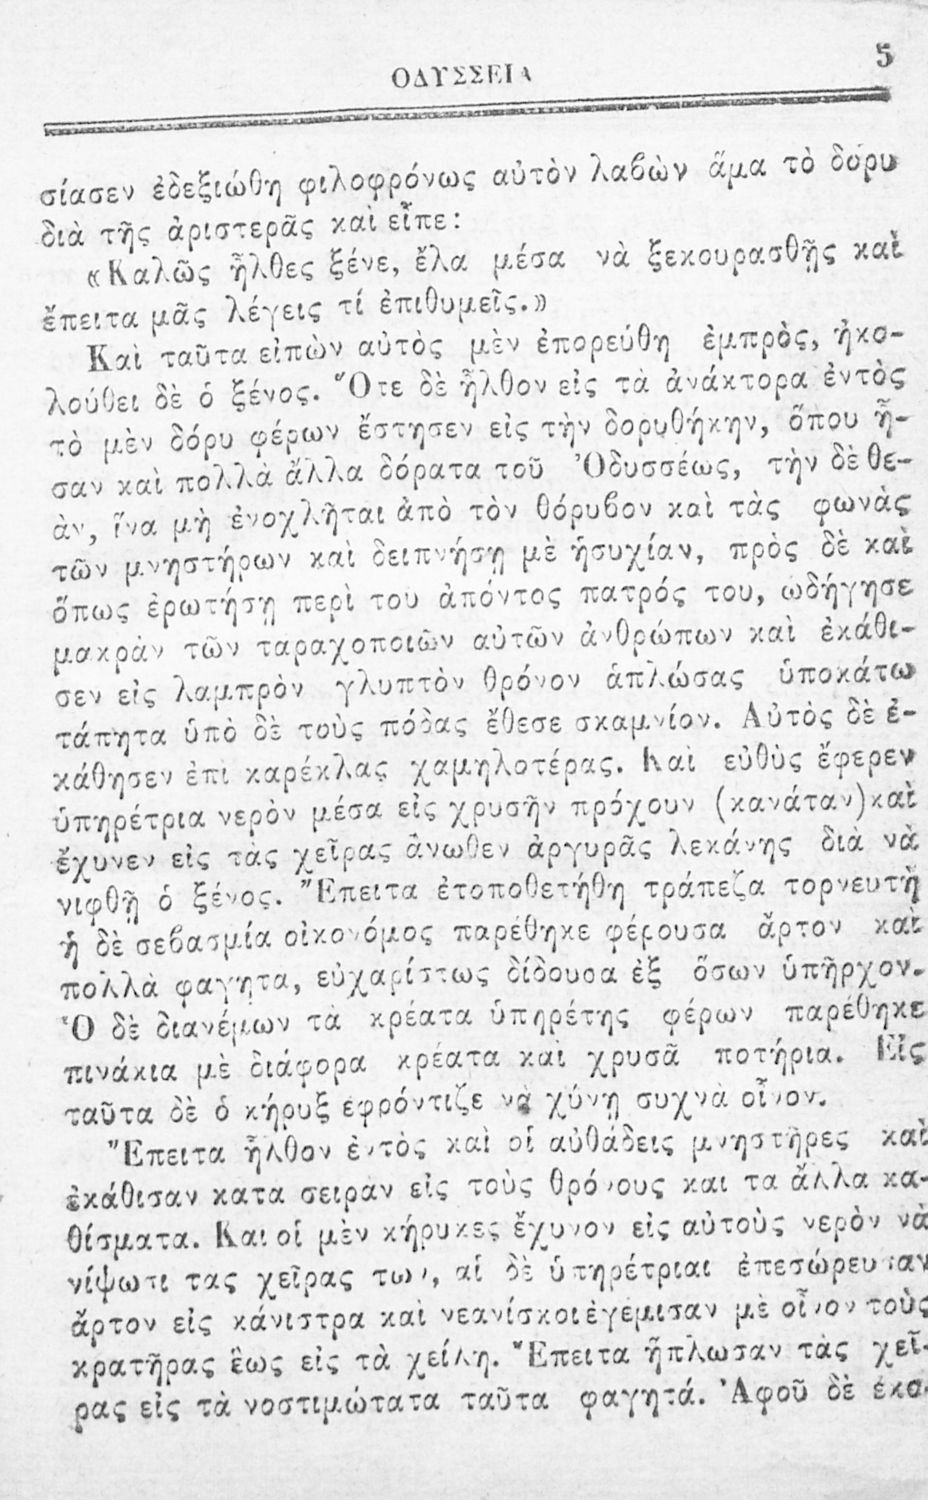 ΟΔΥΣΣΕΙΑ
5
σίασεν ἐδεξιώθη φιλοφρόνως αὐτὸν λαβὼν ἅμα τὸ δόρυ
διὰ τῆς ἀριστερᾶς καὶ εἶπε:
«Καλῶς ἦλθες ξένε, ἔλα μέσα νὰ ξεκουρασθῇς καὶ
ἔπειτα μᾶς λέγεις τί ἐπιθυμεῖς.»
Καὶ ταῦτα εἰπὼν αὐτὸς μὲν ἐπορεύθη ἐμπρὸς, ἠκο-
λούθει δὲ ὁ ξένος. Ὅτε δὲ ἦλθον εἰς τὰ ἀνάκτορα ἐντὸς
τὸ μὲν δόρυ φέρων ἔστησεν εἰς τὴν δορυθήκην, ὅπου ἦ-
σαν καὶ πολλὰ ἄλλα δόρατα τοῦ Ὀδυσσέως, τὴν δὲ θε-
ὰν, ἵνα μὴ ἐνοχλῆται ἀπὸ τὸν θόρυβον καὶ τὰς φωνὰς
τῶν μνηστήρων καὶ δειπνήσῃ μὲ ἡσυχίαν, πρὸς δὲ καὶ
ὅπως ἐρωτήσῃ περὶ τοῦ ἀπόντος πατρός του, ὡδήγησε
μακρὰν τῶν ταραχοποιῶν αὐτῶν ἀνθρώπων καὶ ἐκάθι-
σεν εἰς λαμπρὸν γλυπτὸν θρόνον ἁπλώσας ὑποκάτω
τάπητα ὑπὸ δὲ τοὺς πόδας ἔθεσε σκαμνίον. Αὐτὸς δὲ ἐ-
κάθησεν ἐπὶ καρέκλας χαμηλοτέρας. Καὶ εὐθὺς ἔφερεν
ὑπηρέτρια νερὸν μέσα εἰς χρυσῆν πρόχουν (κανάταν) καὶ
ἔχυνεν εἰς τὰς χεῖρας ἄνωθεν ἀργυρᾶς λεκάνης διὰ νὰ
νιφθῇ ὁ ξένος. Ἔπειτα ἐτοποθετήθη τράπεζα τορνευτὴ
ἡ δὲ σεβασμία οἰκονόμος παρέθηκε φέρουσα ἄρτον καὶ
πολλὰ φαγητα, εὐχαρίστως δίδουσα ἐξ ὅσων ὑπῆρχον.
Ὁ δὲ διανέμων τὰ κρέατα ὑπηρέτης φέρων παρέθηκε
πινάκια μὲ διάφορα κρέατα καὶ χρυσᾶ ποτήρια. Εἰς
ταῦτα δὲ ὁ κήρυξ ἐφρόντιζε νὰ χύνῃ συχνὰ οἶνον.
Ἔπειτα ἦλθον ἐντὸς καὶ οἱ αὐθάδεις μνηστῆρες καὶ
ἐκάθισαν κατα σειρὰν εἰς τοὺς θρόνους και τα ἄλλα κα-
θίσματα. Και οἱ μὲν κήρυκες ἔχυνον εἰς αὐτοὺς νερὸν νὰ
νίψωσι τας χεῖρας των, αἱ δὲ ὑπηρέτριαι ἐπεσώρευσαν
ἄρτον εἰς κάνιστρα καὶ νεανίσκοι ἐγέμισαν μὲ οἶνον τοὺς
κρατῆρας ἕως εἰς τὰ χείλη. Ἔπειτα ἥπλωσαν τὰς χεῖ-
ρας εἰς τὰ νοστιμώτατα ταῦτα φαγητά. Ἀφοῦ δὲ ἐκο-